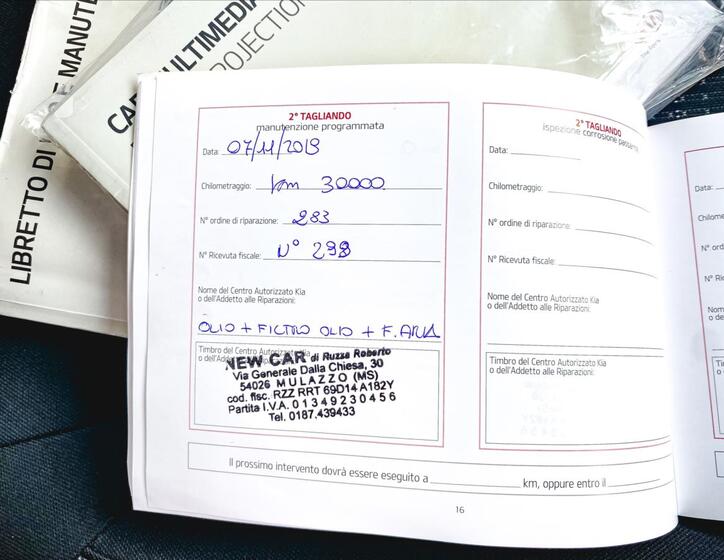 LIBRETTO DI
E MANUTE
CAR MULTIMEDIA
PROJECTION
KIA
2° TAGLIANDO
manutenzione programmata
Data: 07/11/2019
Chilometraggio: km 30000
N° ordine di riparazione: 283
N° Ricevuta fiscale: N° 298
Nome del Centro Autorizzato Kia
o dell'Addetto alle Riparazioni:
OLIO + FILTRO OLIO + F. ARIA
Timbro del Centro Autorizzato Kia
o dell'Addetto alle Riparazioni:
NEW CAR di Ruzza Roberto
Via Generale Dalla Chiesa, 30
54026 MULAZZO (MS)
cod. fisc. RZZ RRT 69D14 A182Y
Partita I.V.A. 01349230456
Tel. 0187.439433
2° TAGLIANDO
ispezione corrosione passante
Data:
Chilometraggio:
N° ordine di riparazione:
N° Ricevuta fiscale:
Nome del Centro Autorizzato Kia
o dell'Addetto alle Riparazioni:
Timbro del Centro Autorizzato Kia
o dell'Addetto alle Riparazioni:
Il prossimo intervento dovrà essere eseguito a km, oppure entro il
16
Data:
Chilome
N° ord
N° Ric
Nom
o de
Ti